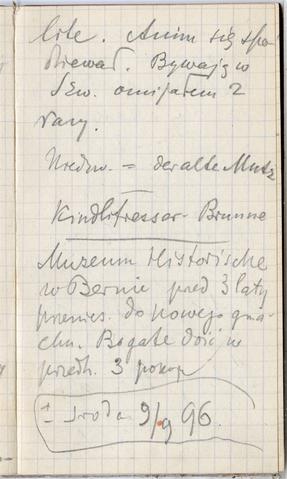 lite. Anim się spo
dziewał. Bywając w
Szw. omijałem 2
razy.
Niedźw. = der alte Mutz
Kindlifresser-Brunne
Muzeum Historische
w Bernie przed 3 laty
przenies. do nowego gma
chu. Bogate dość w
przedh. 3 pokoje
± środa 9/9 96.